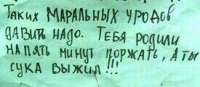 Таких МАРАЛЬНЫХ УРОДОВ
ДАВИТЬ НАДО. ТЕБЯ РОДИЛИ
НА ПЯТЬ МИНУТ ПОРЖАТЬ, А ТЫ
СУКА ВЫЖИЛ!!!